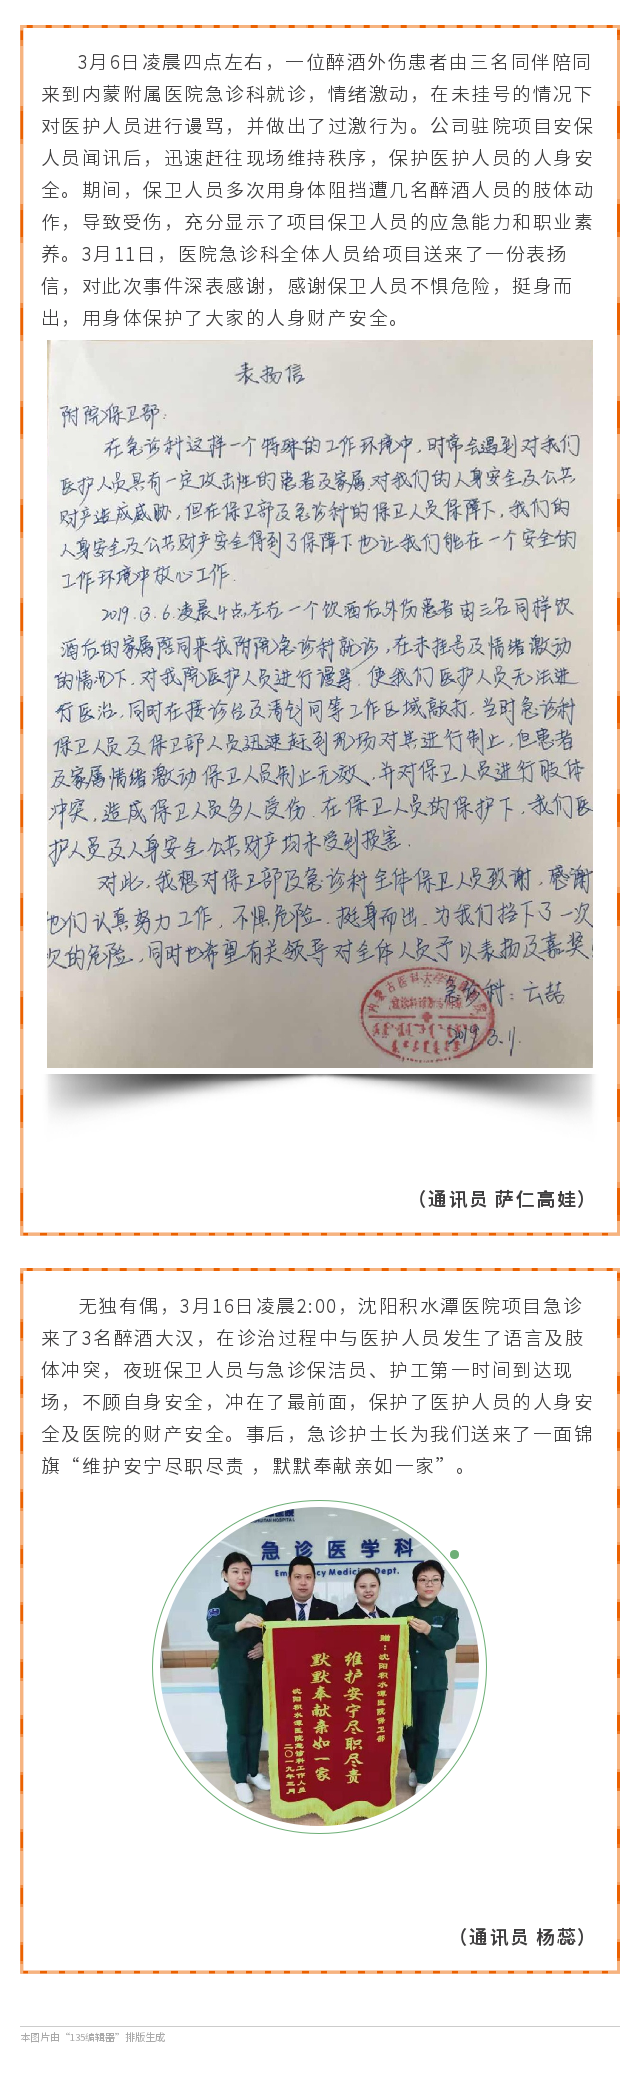 3月6日凌晨四点左右，一位醉酒外伤患者由三名同伴陪同
来到内蒙附属医院急诊科就诊，情绪激动，在未挂号的情况下
对医护人员进行谩骂，并做出了过激行为。公司驻院项目安保
人员闻讯后，迅速赶往现场维持秩序，保护医护人员的人身安
全。期间，保卫人员多次用身体阻挡遭几名醉酒人员的肢体动
作，导致受伤，充分显示了项目保卫人员的应急能力和职业素
养。3月11日，医院急诊科全体人员给项目送来了一份表扬
信，对此次事件深表感谢，感谢保卫人员不惧危险，挺身而
出，用身体保护了大家的人身财产安全。
表扬信
附院保卫部：
在急诊科这样一个特殊的工作环境中，时常会遇到对我们
医护人员具有一定攻击性的患者及家属，对我们的人身安全及公共
财产造成威胁，但在保卫部及急诊科的保卫人员保障下，我们的
人身安全及公共财产安全得到了保障下也让我们能在一个安全的
工作环境中放心工作．
2019.3.6.凌晨4点左右一个饮酒后外伤患者由三名同样饮
酒后的家属陪同来我附院急诊科就诊，在未挂号及情绪激动
的情况下，对我院医护人员进行谩骂．使我们医护人员无法进
行医治，同时在接诊台及清创间等工作区域敲打，当时急诊科
保卫人员及保卫部人员迅速赶到现场对其进行制止，但患者
及家属情绪激动保卫人员制止无效，并对保卫人员进行肢体
冲突，造成保卫人员多人受伤．在保卫人员的保护下，我们医
护人员及人身安全公共财产均未受到损害．
对此，我想对保卫部及急诊科全体保卫人员致谢，感谢
他们认真努力工作，不惧危险．挺身而出．为我们挡下了一次
次的危险，同时也希望有关领导对全体人员予以表扬及嘉奖！
急诊科：云喆
2019.3.11.
（通讯员 萨仁高娃）
无独有偶，3月16日凌晨2:00，沈阳积水潭医院项目急诊
来了3名醉酒大汉，在诊治过程中与医护人员发生了语言及肢
体冲突，夜班保卫人员与急诊保洁员、护工第一时间到达现
场，不顾自身安全，冲在了最前面，保护了医护人员的人身安
全及医院的财产安全。事后，急诊护士长为我们送来了一面锦
旗“维护安宁尽职尽责 ，默默奉献亲如一家”。
急诊医学科
Emergency Medicine Dept.
赠：沈阳积水潭医院保卫部
维护安宁尽职尽责
默默奉献亲如一家
沈阳积水潭医院急诊科工作人员
二〇一九年三月
（通讯员 杨蕊）
本图片由“135编辑器”排版生成